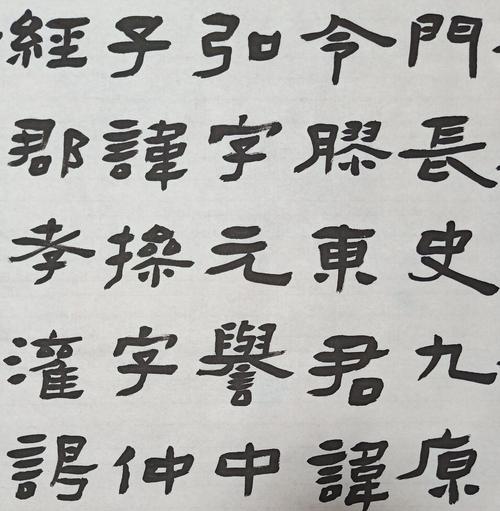 門長史九原
令膠東君諱
弘字元譽中
子諱操字仲
經郡孝灌謁